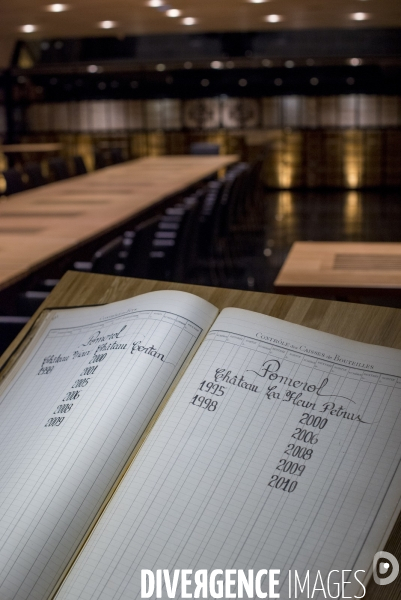 Pomerol
Château Vieux Château Certan
1999
2000
2001
2005
2006
2008
2009
CONTRÔLE DES CAISSES DE BOUTEILLES
Pomerol
Château La Fleur Petrus
1995
1998
2000
2006
2008
2009
2010
DIVERGENCE IMAGES